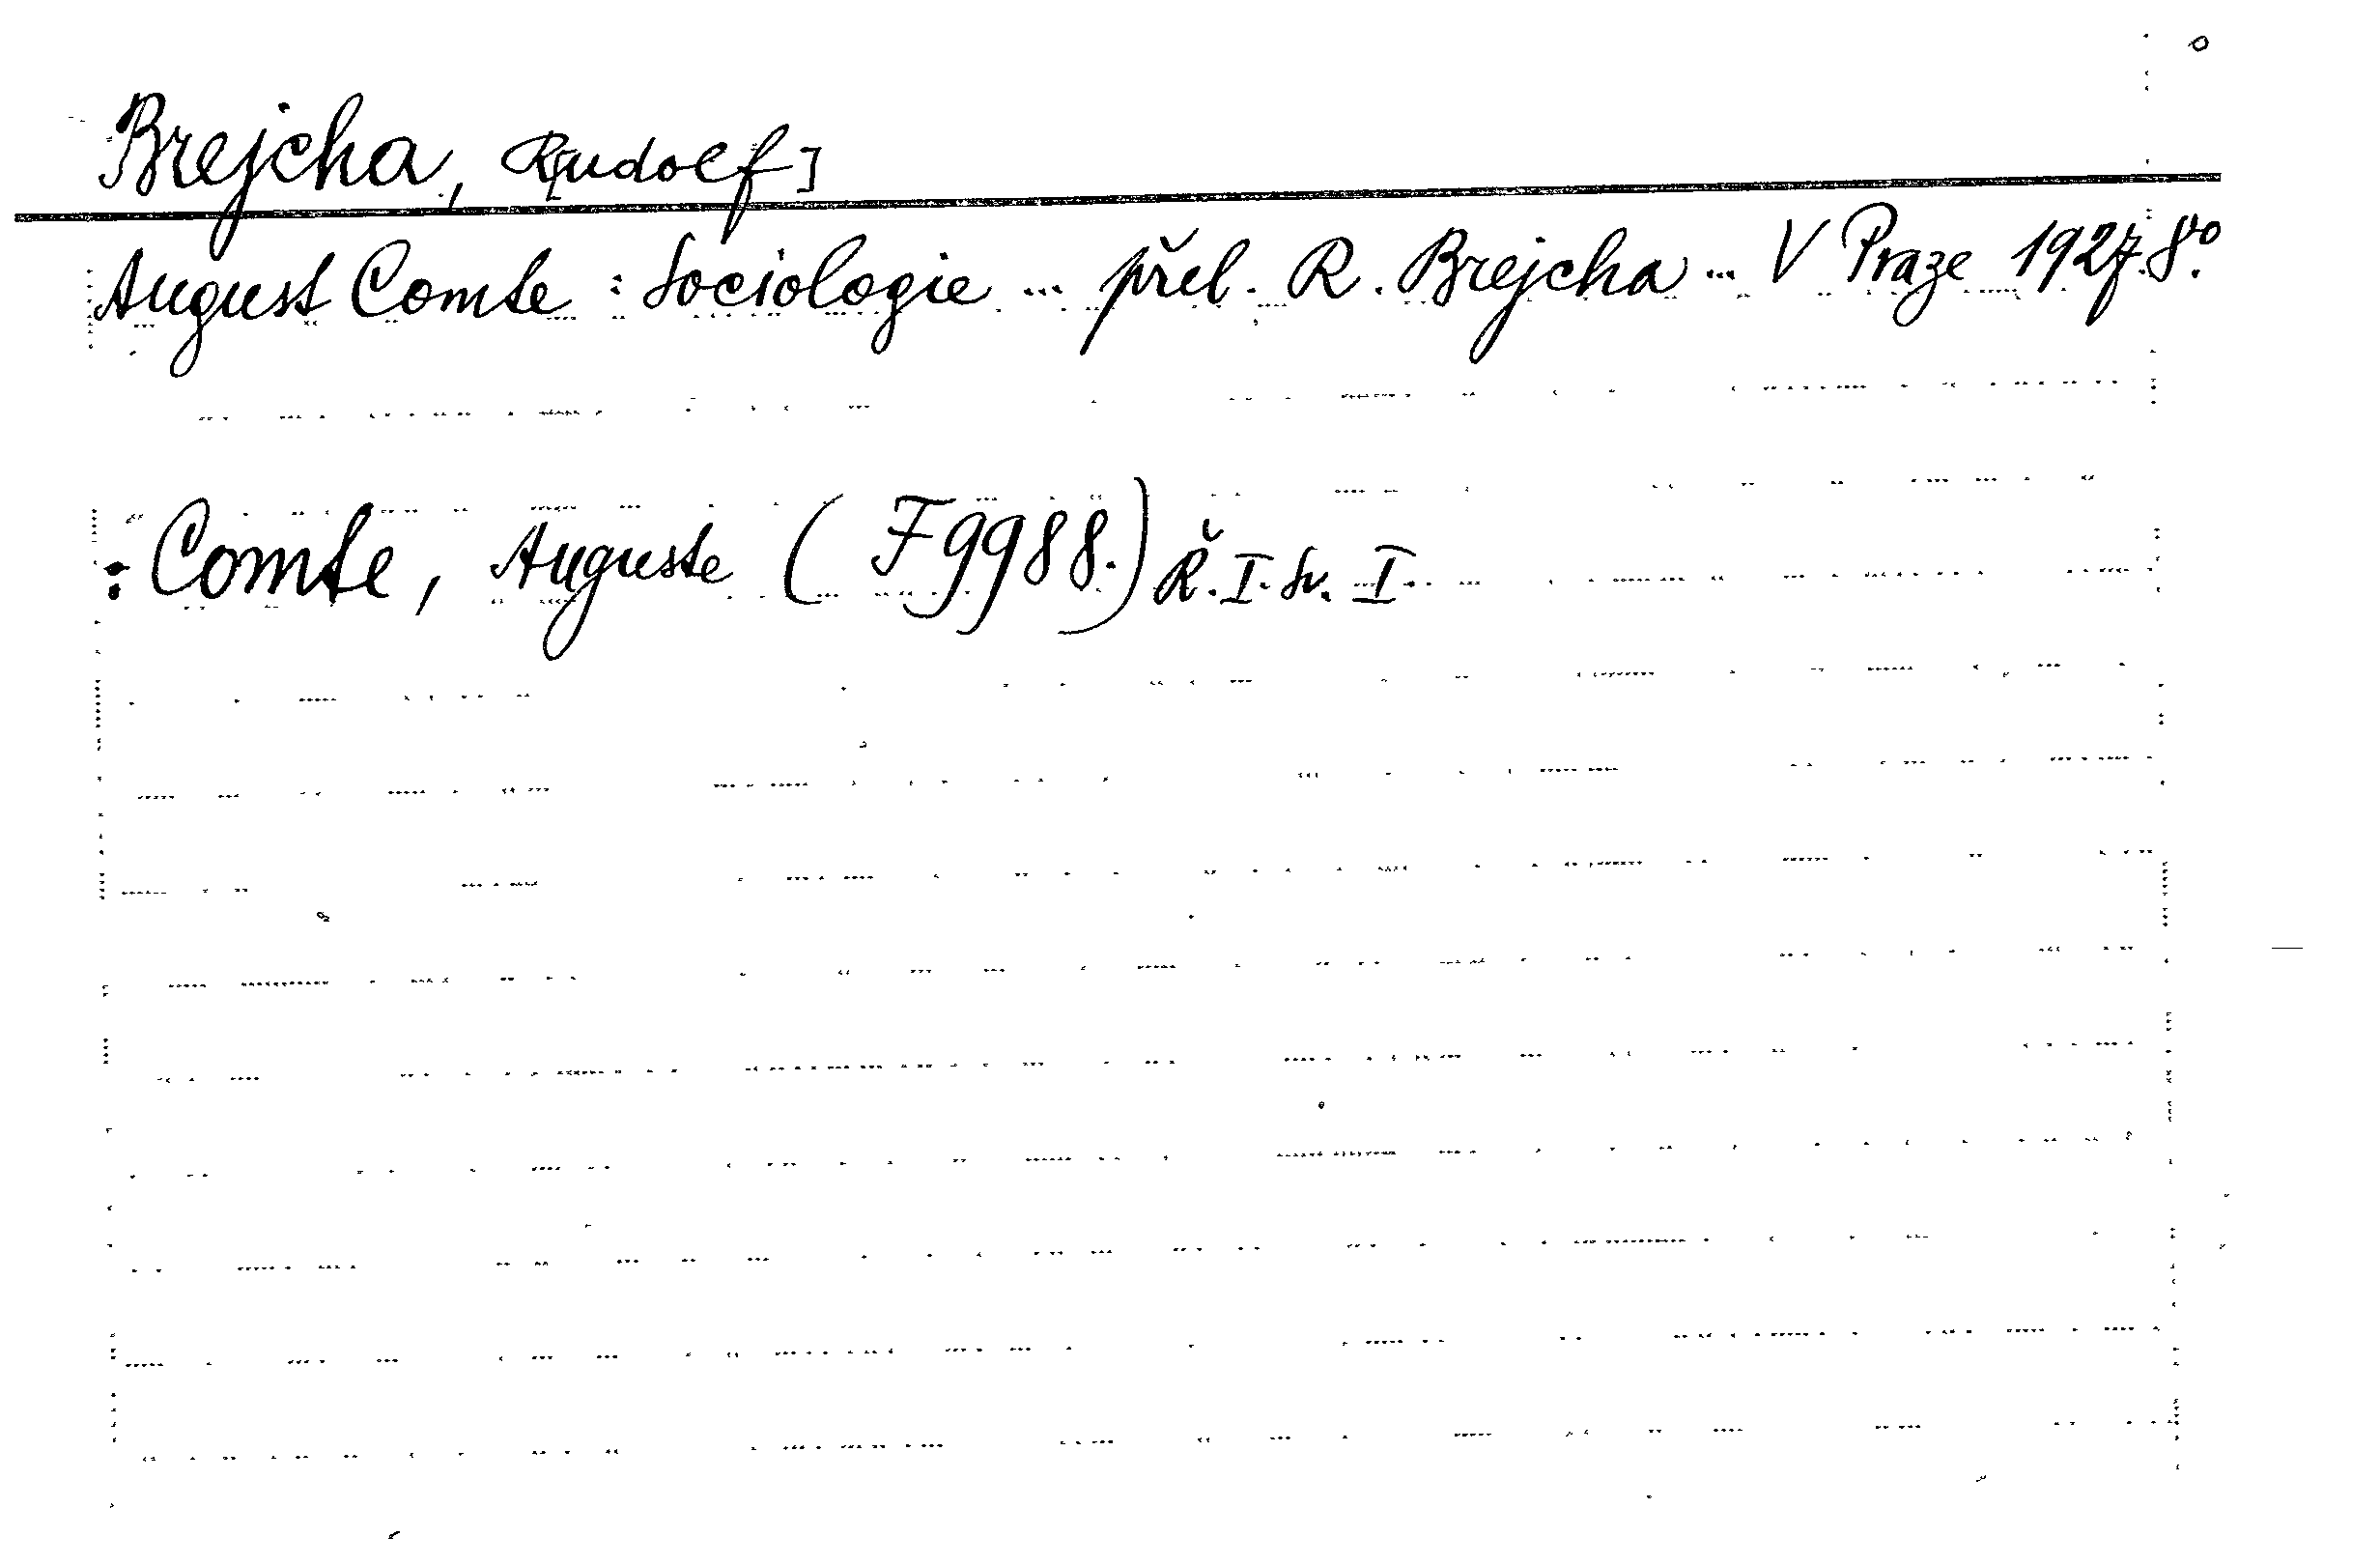 Brejcha, R[udolf]
August Comte : Sociologie ... přel. R. Brejcha ... V Praze 1927. 8°.
: Comte, Auguste (F 9988.) Ř. I. Sv. I.